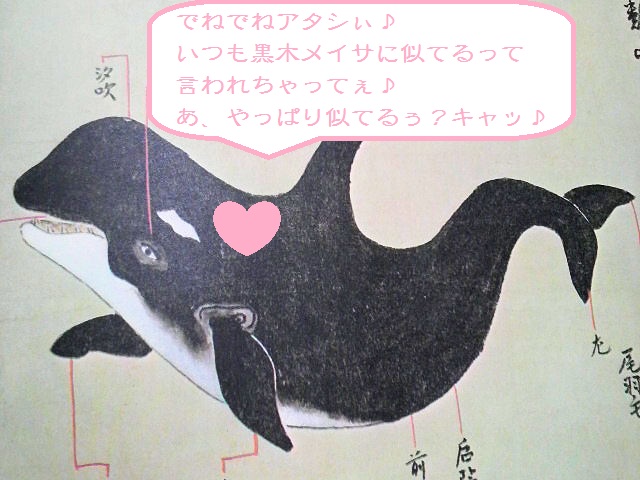 でねでねアタシぃ♪
いつも黒木メイサに似てるって
言われちゃってぇ♪
あ、やっぱり似てるぅ？キャッ♪
汐吹
尾羽毛
前